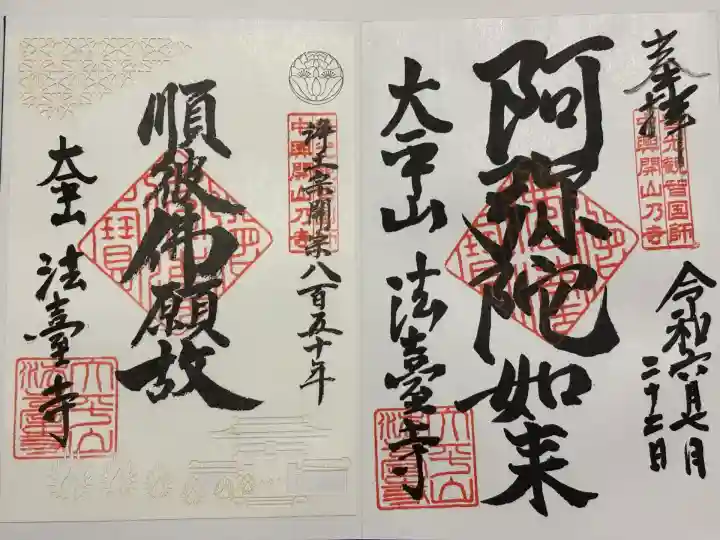 奉拝
中興開山乃寺
令和六年七月
二十七日
阿弥陀如来
大平山
法臺寺
浄土宗開宗八百五十年
中興開山乃寺
順彼佛願故
法臺寺